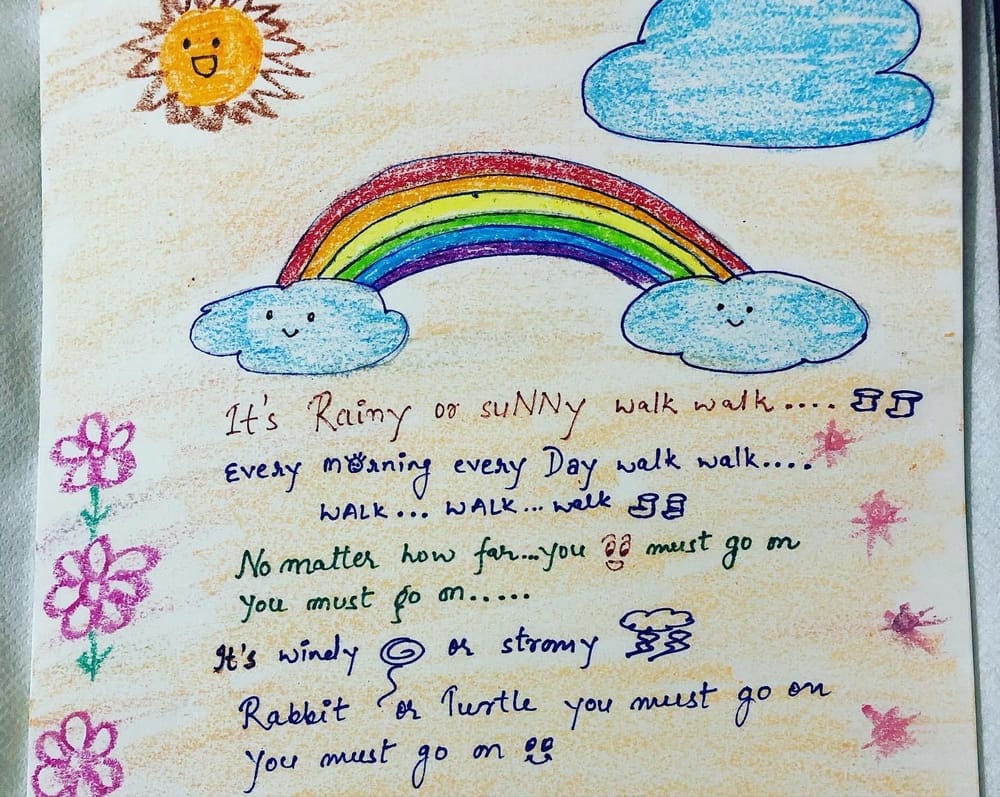 It's Rainy or suNNy walk walk....
Every morning every Day walk walk....
WALK... WALK... walk
No matter how far...you must go on
You must go on.....
It's windy or stromy
Rabbit or Turtle you must go on
You must go on